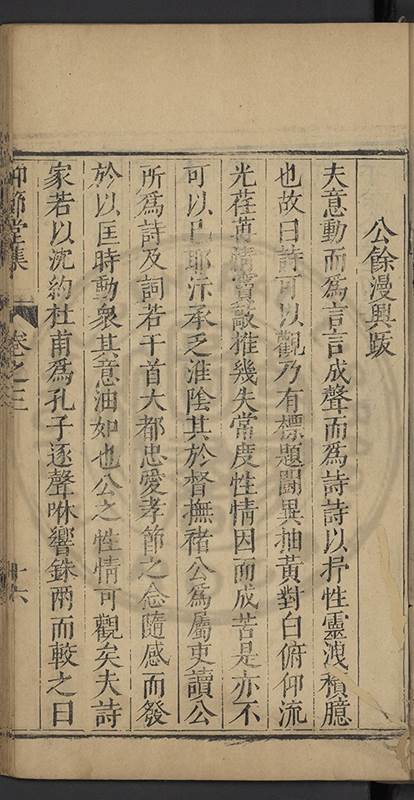 公餘漫興跋
夫意動而為言言成聲而為詩詩以抒性靈洩積臆
也故曰詩可以觀乃有標題鬬異抽黃對白俯仰流
光荏苒清賞敲推幾失常度性情因而成苦是亦不
可以已耶汴承乏淮陰其於督撫褚公為屬吏讀公
所為詩及詞若干首大都忠愛孝節之念隨感而發
於以匡時動衆其意油如也公之性情可觀矣夫詩
家若以沈約杜甫為孔子逐聲咻響銖兩而較之曰
仰節堂集
卷之三
十六